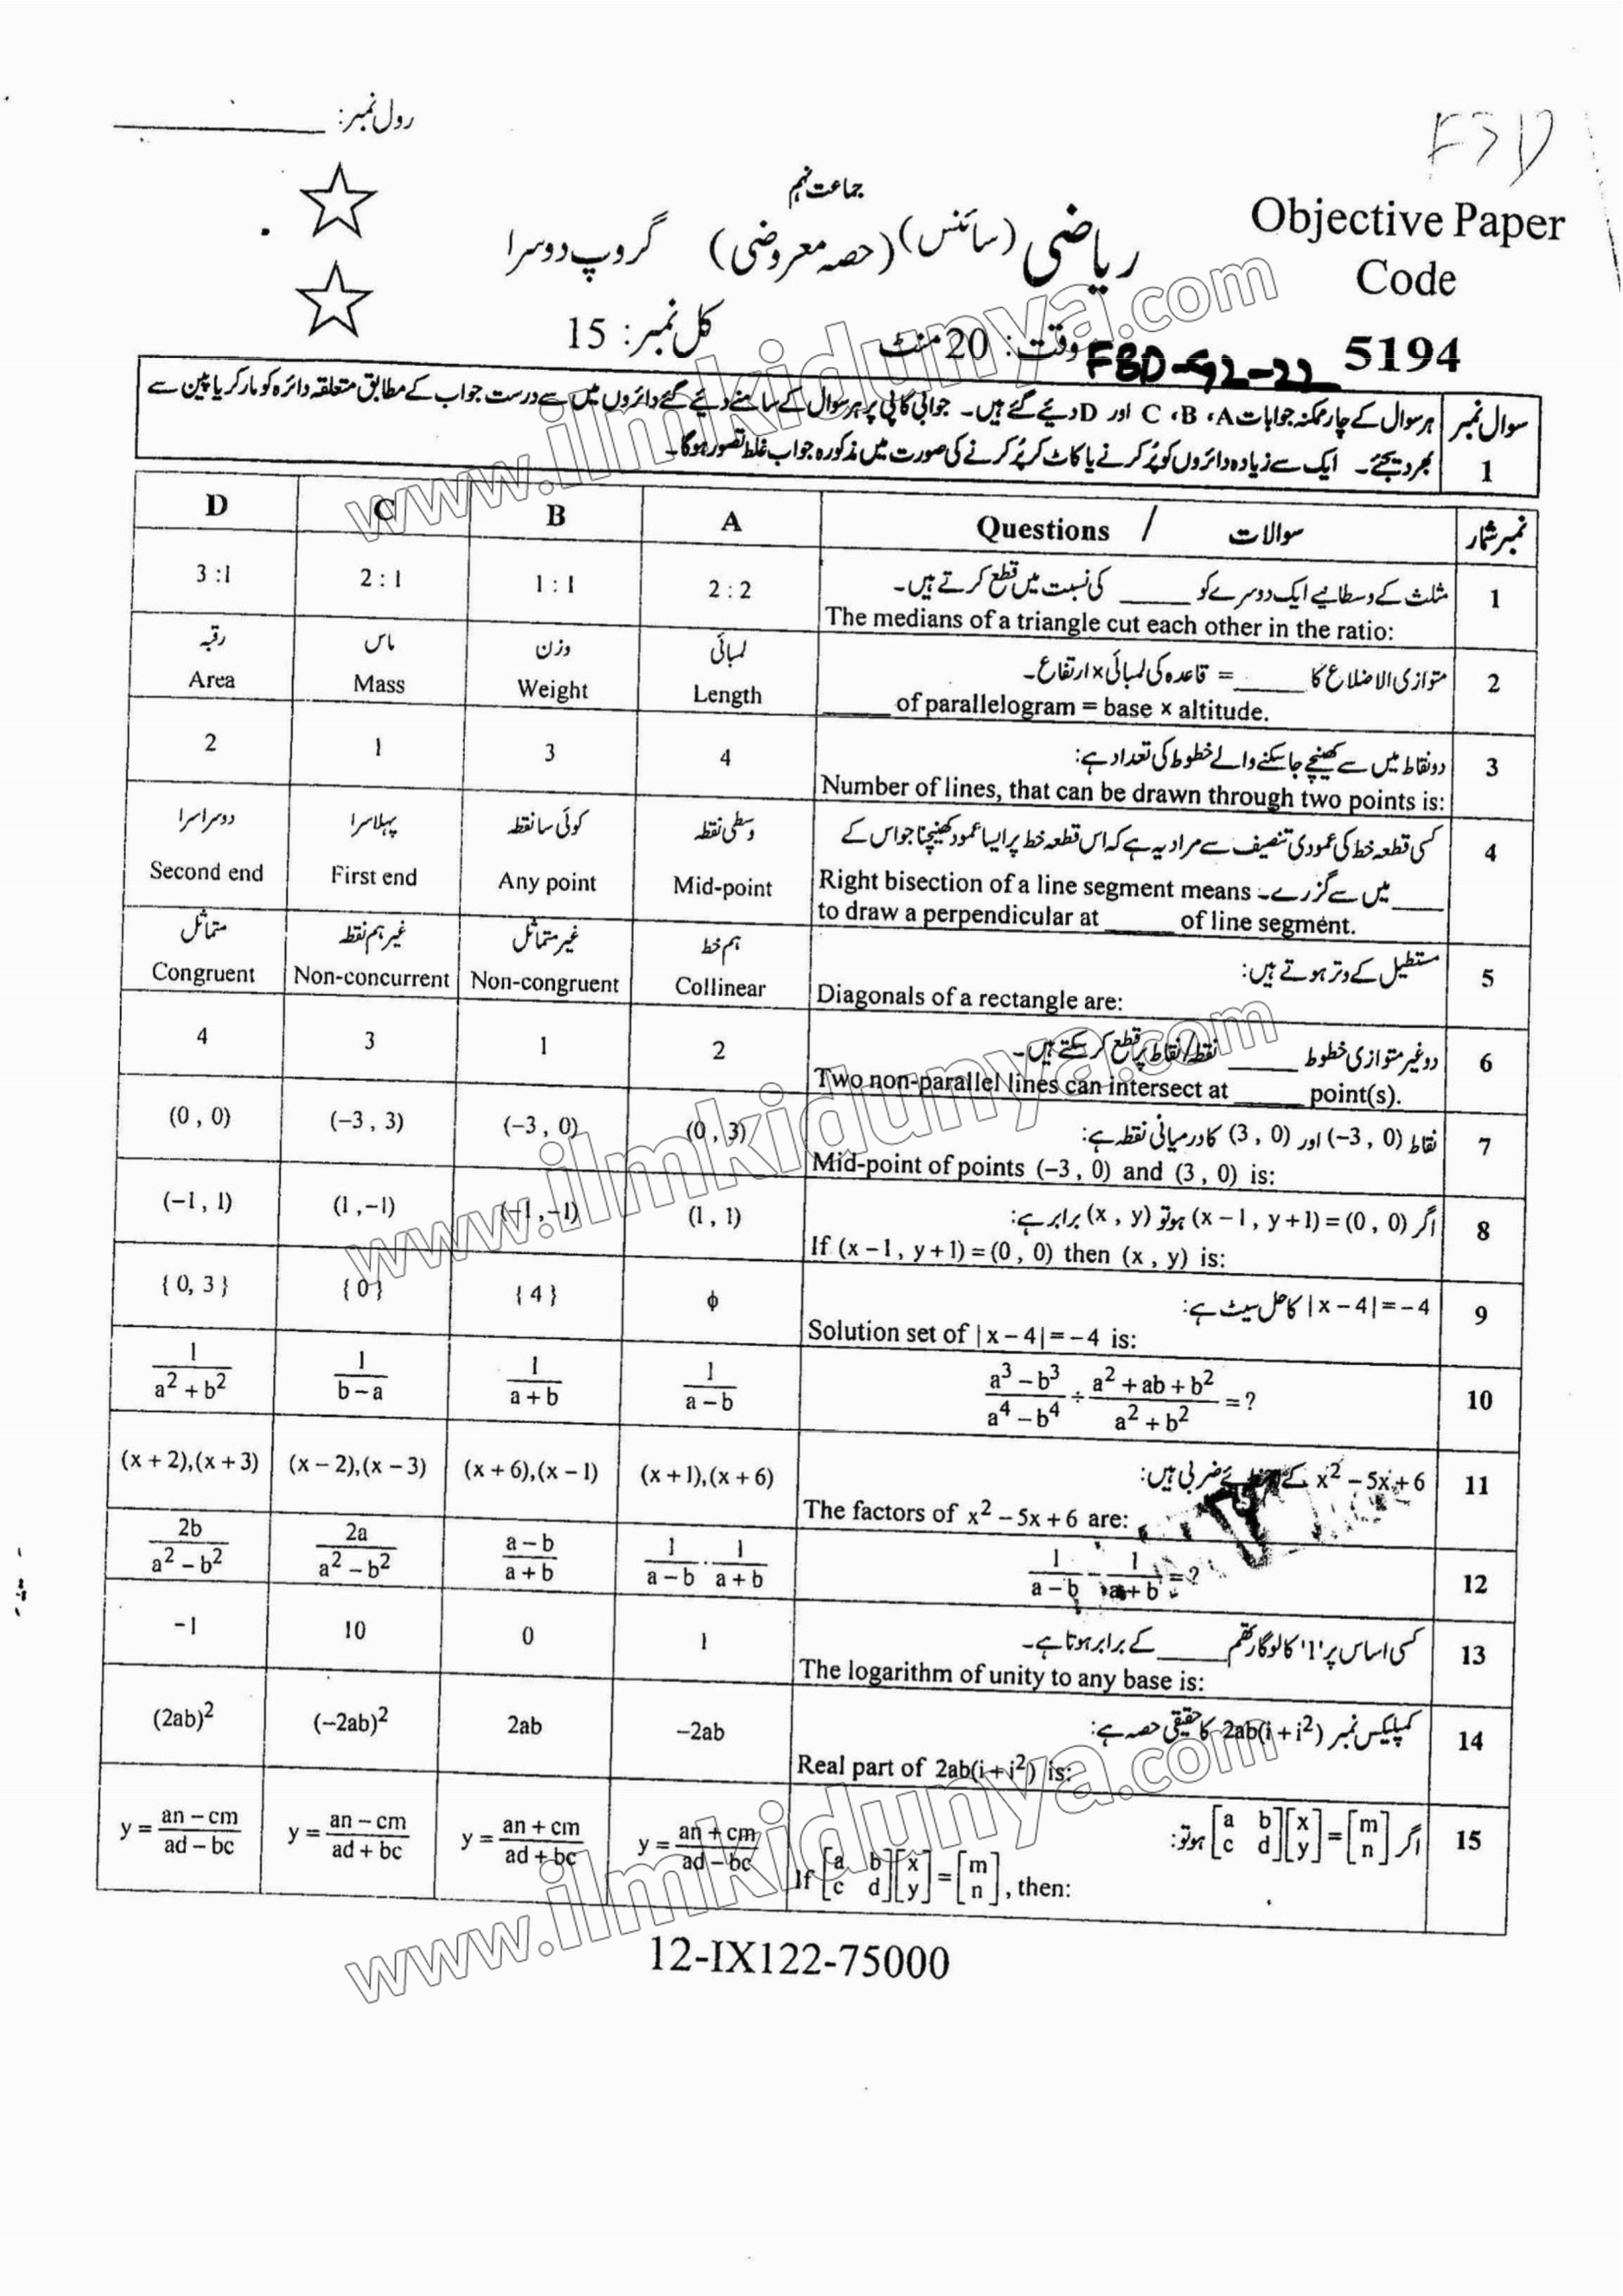 رول نمبر:
FSD
جماعت نہم
Objective Paper
Code
5194
ریاضی (سائنس) (حصہ معروضی) گروپ دوسرا
وقت: 20 منٹ کل نمبر: 15
FBD-G2-22
سوال نمبر 1
ہر سوال کے چار ممکنہ جوابات A، B، C اور D دیئے گئے ہیں۔ جوابی کاپی پر ہر سوال کے سامنے دیئے گئے دائروں میں سے درست جواب کے مطابق متعلقہ دائرہ کو مارکر یا پین سے
بھر دیجئے۔ ایک سے زیادہ دائروں کو پُر کرنے یا کاٹ کر پُر کرنے کی صورت میں مذکورہ جواب غلط تصور ہوگا۔
نمبر شمار سوالات / Questions A B C D
1 مثلث کے وسطانیے ایک دوسرے کو _____ کی نسبت میں قطع کرتے ہیں۔
The medians of a triangle cut each other in the ratio:
2 : 2 1 : 1 2 : 1 3 :1
2 متوازی الاضلاع کا _____ = قاعدہ کی لمبائی × ارتفاع۔
_____ of parallelogram = base × altitude.
لمبائی وزن ماس رقبہ
Length Weight Mass Area
3 دو نقاط میں سے کھینچے جا سکنے والے خطوط کی تعداد ہے:
Number of lines, that can be drawn through two points is:
4 3 1 2
4 کسی قطعہ خط کی عمودی تنصیف سے مراد یہ ہے کہ اس قطعہ خط پر ایسا عمود کھینچنا جو اس کے
_____ میں سے گزرے۔ Right bisection of a line segment means
to draw a perpendicular at _____ of line segment.
وسطی نقطہ کوئی سا نقطہ پہلا سرا دوسرا سرا
Mid-point Any point First end Second end
5 مستطیل کے وتر ہوتے ہیں:
Diagonals of a rectangle are:
ہم خط غیر متماثل غیر ہم نقطہ متماثل
Collinear Non-congruent Non-concurrent Congruent
6 دو غیر متوازی خطوط _____ نقطہ/نقاط پر قطع کر سکتے ہیں۔
Two non-parallel lines can intersect at _____ point(s).
2 1 3 4
7 نقاط (−3 , 0) اور (3 , 0) کا درمیانی نقطہ ہے:
Mid-point of points (−3 , 0) and (3 , 0) is:
(0 , 3) (−3 , 0) (−3 , 3) (0 , 0)
8 اگر (x −1 , y +1) = (0 , 0) ہو تو (x , y) برابر ہے:
If (x −1 , y +1) = (0 , 0) then (x , y) is:
(1 , 1) (−1 ,−1) (1 ,−1) (−1 , 1)
9 |x − 4| = −4 کا حل سیٹ ہے:
Solution set of |x − 4| = −4 is:
ϕ { 4 } { 0 } { 0, 3 }
10 (a³ − b³)/(a⁴ − b⁴) ÷ (a² + ab + b²)/(a² + b²) = ?
1/(a − b) 1/(a + b) 1/(b − a) 1/(a² + b²)
11 x² − 5x + 6 کے ضربی ہیں:
The factors of x² − 5x + 6 are:
(x + 1),(x + 6) (x + 6),(x − 1) (x − 2),(x − 3) (x + 2),(x + 3)
12 1/(a − b) − 1/(a + b) = ?
1/(a − b) · 1/(a + b) (a − b)/(a + b) 2a/(a² − b²) 2b/(a² − b²)
13 کسی اساس پر '1' کا لوگارتھم _____ کے برابر ہوتا ہے۔
The logarithm of unity to any base is:
1 0 10 −1
14 کمپلیکس نمبر 2ab(i + i²) کا حقیقی حصہ ہے:
Real part of 2ab(i + i²) is:
−2ab 2ab (−2ab)² (2ab)²
15 اگر [a b; c d][x; y] = [m; n] ہو تو:
If [a b; c d][x; y] = [m; n] , then:
y = (an + cm)/(ad − bc) y = (an + cm)/(ad + bc) y = (an − cm)/(ad + bc) y = (an − cm)/(ad − bc)
12-IX122-75000
www.ilmkidunya.com
www.ilmkidunya.com
www.ilmkidunya.com